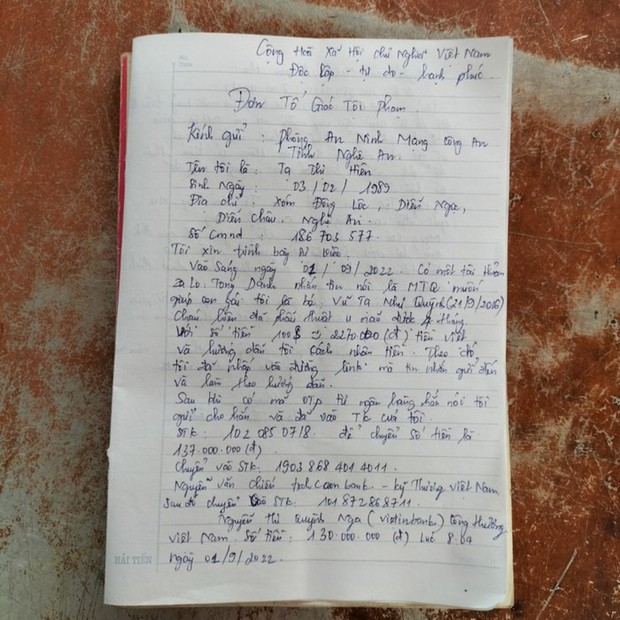 Cộng Hoà Xã Hội Chủ Nghĩa Việt Nam
Độc lập - tự do - hạnh phúc.
Đơn Tố Giác Tội phạm
Kính gửi : phòng An Ninh Mạng công An
Tỉnh Nghệ An.
Tên tôi là : Tạ Thị Hiên
Sinh Ngày : 03 / 02 / 1989
Địa chỉ : xóm Đông Lộc, Diễn Ngọc,
Diễn Châu. Nghệ An.
Số Cmnd : 186 703 577.
Tôi xin trình bày sự việc.
Vào Sáng ngày 01 / 09 / 2022. Có một tài khoản
Za Lo. Tong Danh nhắn tin nói là MTQ muốn
giúp con gái tôi là bé. Vũ Tạ Như Quỳnh (21/9/2016)
Cháu hiện đã phẫu thuật u não được 4 tháng.
Với số tiền 100$ = 2270000 (đ) tiền việt
và hướng dẫn tôi cách nhận tiền. Theo đó
tôi đã nhập vào đường link mà tin nhắn gửi đến
và làm theo hướng dẫn.
Sau khi có mã OTP từ ngân hàng hắn nói tôi
gửi cho hắn và đã vào TK của tôi.
STK: 102 085 0718. để chuyển số tiền là
137.000.000 (đ)
Chuyển vào STK: 1903 868 401 4011.
Nguyễn văn chiến - kỹ Thương Việt Nam
sau đó chuyển vào STK: 101872868711.
Nguyễn thị quỳnh Nga (viettinbank) Công thương
việt Nam. Số tiền: 130.000.000 (đ) Lúc 8.04
ngày 01/9/2022.
HẢI TIẾN